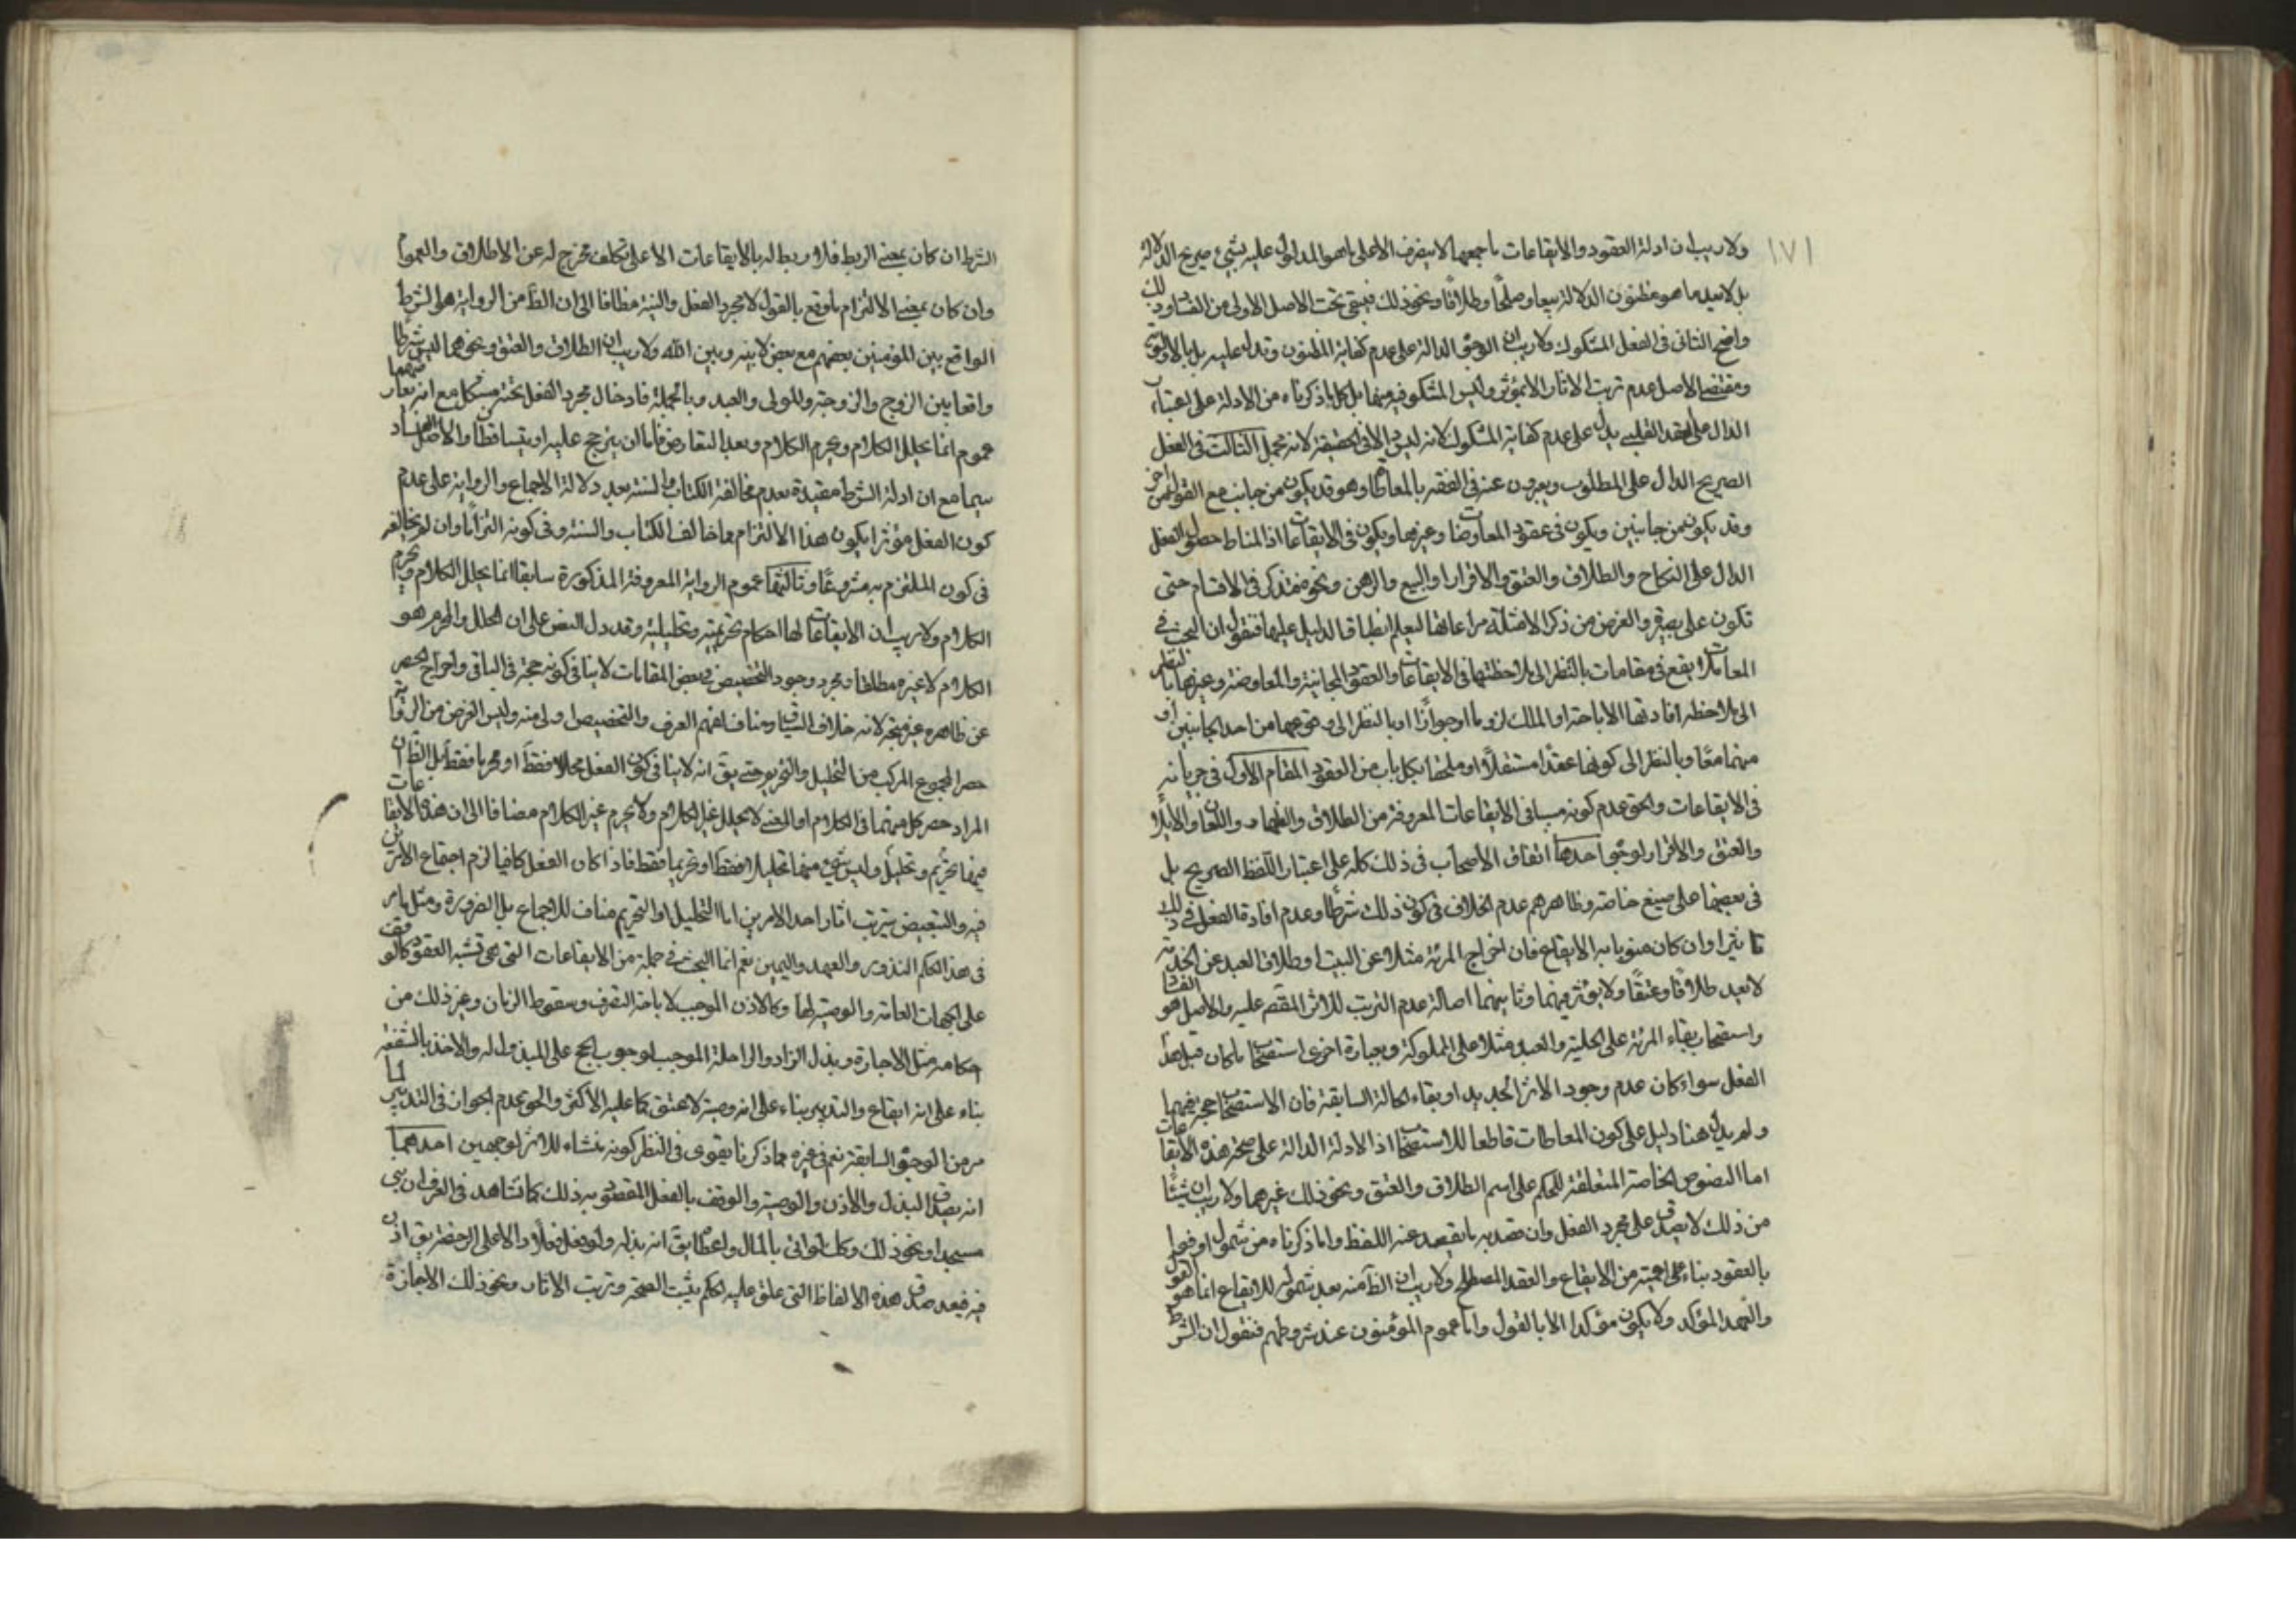 ١٧١
ولا ريب ان ادلة العقود والايقاعات باجمعها لا ينصرف الا على ما هو المدلول عليه بشيء صريح الدلالة
بل لا يعد ما هو مظنون الدلالة بيعا وصلحا وطلاقا ونحو ذلك فيبقى تحت الاصل الاولي من الفساد
الثاني في الفعل المشكوك ولا ريب ان الوجوه الدالة على عدم كفاية المظنون وتدل عليه بل بالاولوية
ومقتضى الاصل عدم ترتب الاثار الا بمؤثر وليس المشكوك فيه منها بل كل ما ذكرناه من الادلة على اعتبار
الدال على القصد القلبي يدل على عدم كفاية المشكوك لانه ليس دالا في الحقيقة لانه مجمل الثالث في الفعل
الصريح الدال على المطلوب ويعبرون عنه في الفقه بالمعاطاة وهو قد يكون من جانب مع القول من اخر
وقد يكون من جانبين ويكون في عقود المعاوضات وغيرها ويكون في الايقاعات اذ المناط حصول الفعل
الدال على النكاح والطلاق والعتق والاقرار او البيع والرهن ونحو فتذكر في الاقسام حتى
تكون على بصيرة والغرض من ذكر الامثلة مراعاتها ليعلم انطباق الدليل عليها فنقول ان البحث في
المعاملات يقع في مقامات بالنظر الى ملاحظتها في الايقاعات والعقود المجانية والمعاوضة وغيرها بالنظر
الى ملاحظة افادتها الاباحة او الملك لزوما او جوازا او بالنظر الى وقوعها من احد الجانبين او
منهما معا وبالنظر الى كونها عقدا مستقلا او ملحقا بكل باب من العقود المقام الاول في جريانه
في الايقاعات والحق عدم كونه سببا في الايقاعات المعروفة من الطلاق والظهار واللعان والايلاء
والعتق والاقرار لوجوه احدها اتفاق الاصحاب في ذلك كله على اعتبار اللفظ الصريح بل
في بعضها على صيغ خاصة وظاهرهم عدم الخلاف في كون ذلك شرطا وعدم افادة الفعل في ذلك
تاثيرا وان كان منويا به الايقاع فان اخراج المرئة مثلا عن البيت او طلاق العبد عن الخدمة
لا يعد طلاقا وعتقا ولا يؤثر فيهما وثانيهما اصالة عدم الترتب للاثر المقصود عليه والاصل هو الفساد
واستصحاب بقاء المرئة على الحلية والعبد مثلا على المملوكة وبعبارة اخرى استصحاب ما كان قبل هذا
الفعل سواء كان عدم وجود الاثر الجديد او بقاء الحالة السابقة فان الاستصحاب حجة فيهما
ولم يدل هنا دليل على كون المعاطات قاطعا للاستصحاب اذ الادلة الدالة على صحة هذه الايقاعات
اما النصوص الخاصة المتعلقة للحكم على اسم الطلاق والعتق ونحو ذلك غيرهما ولا ريب ان شيئا
من ذلك لا يصدق على مجرد الفعل وان قصد به ما يقصد عنه اللفظ واما ذكرناه من شمول اوفوا
بالعقود بناء على اعميته من الايقاع والعقد المصطلح ولا ريب ان الظ منه بعد شموله للايقاع انما هو القول
والعهد المؤكد ولا يكون مؤكدا الا بالقول واما عموم المؤمنون عند شروطهم فنقول ان الشرط
الشرط ان كان بمعنى الربط فلا ربط له بالايقاعات الا على تكلف مخرج له عن الاطلاق والعموم
وان كان بمعنى الالتزام ما وقع بالقول لا مجرد الفعل والنية مظافا الى ان الظ من الرواية هو الشرط
الواقع بين المؤمنين بعضهم مع بعض لا بينه وبين الله ولا ريب ان الطلاق والعتق ونحوهما ليس شرطا
واقعا بين الزوج والزوجة والمولى والعبد وبالجملة فادخال مجرد الفعل تحته مشكل مع انه يعارضهما
عموم انما يحلل الكلام ويحرم الكلام وبعد التعارض فاما ان يترجح عليه او يتساقطا والاصل الفساد
سيما مع ان ادلة الشرط مقيدة بعدم مخالفة الكتاب والسنة بعد دلالة الاجماع والرواية على عدم
كون الفعل مؤثرا يكون هذا الالتزام مما خالف الكتاب والسنة وفي كونه التزاما وان لم يخالف
في كون الملتزم به مشروعا وثالثها عموم الرواية المعروفة المذكورة سابقا انما يحلل الكلام ويحرم
الكلام ولا ريب ان الايقاعات لها احكام تحريمية وتحليلية وقد دل النص على ان المحلل والمحرم هو
الكلام لا غيره مطلقا ومجرد وجود التخصيص في بعض المقامات لا ينافي كونه حجة في الباقي واخراج الحصر
عن ظاهره غير متجه لانه خلاف السياق ومناف لفهم العرف والتخصيص اولى منه وليس الغرض من الرواية
حصر المجموع المركب من التحليل والتحريم حتى يق انه لا ينافي كون الفعل محللا فقط او محرما فقط بل الظ ان
المراد حصر كل منهما في الكلام او المعنى لا يحلل غير الكلام ولا يحرم غير الكلام مضافا الى ان هذه الايقاعات
فيها تحريم وتحليل وليس شيء منها تحليلا فقط او تحريما فقط فاذا كان الفعل كافيا لزم اجتماع الامرين
فيه والتبعيض بترتب اثار احد الامرين اما التحليل او التحريم مناف للاجماع بل الضرورة ومثل ما مر
في هذا الحكم النذور والعهد واليمين نعم انما البحث في جملة من الايقاعات التي هي تشبه العقود كالوقف
على الجهات العامة والوصية لها وكالاذن الموجب لاباحة التصرف وسقوط الزمان وغير ذلك من
احكامه مثل الاجازة وبذل الزاد والراحلة الموجب لوجوب الحج على المبذول له والاخذ بالشفعة
بناء على انه ايقاع والتدبير بناء على انه وصية لا عتق كما عليه الاكثر والحق عدم الجريان في التدبير لما
مر من الوجوه السابقة نعم في غيره مما ذكرنا يقوى في النظر كونه منشاء للاثر لوجهين احدهما
انه يصدق البذل والاذن والوصية والوقف بالفعل المقصود به ذلك كما نشاهد في العرف ان بنى
مسجدا ونحو ذلك وكل من اتى بالمال واعطا يق انه بذله ولو فعل فعلا دالا على الرخصة يق اذن
فيه فبعد صدق هذه الالفاظ التي علق عليه الحكم يثبت الصحة وترتب الاثار ونحو ذلك الاجازة